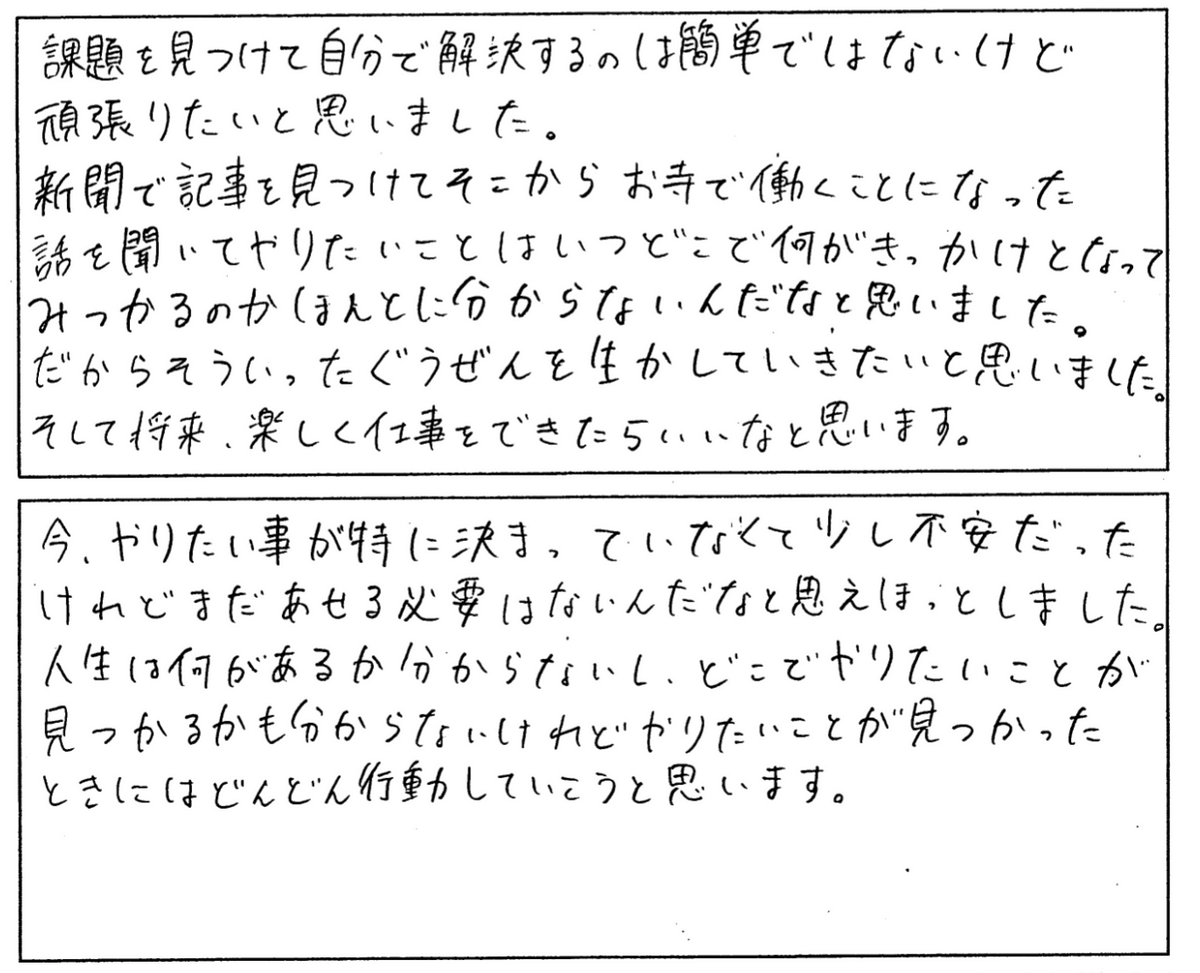 課題を見つけて自分で解決するのは簡単ではないけど
頑張りたいと思いました。
新聞で記事を見つけてそこからお寺で働くことになった
話を聞いてやりたいことはいつどこで何がきっかけとなって
みつかるのかほんとに分からないんだなと思いました。
だからそういったぐうぜんを生かしていきたいと思いました。
そして将来、楽しく仕事をできたらいいなと思います。
今、やりたい事が特に決まっていなくて少し不安だった
けれどまだあせる必要はないんだなと思えほっとしました。
人生は何があるか分からないし、どこでやりたいことが
見つかるかも分からないけれどやりたいことが見つかった
ときにはどんどん行動していこうと思います。